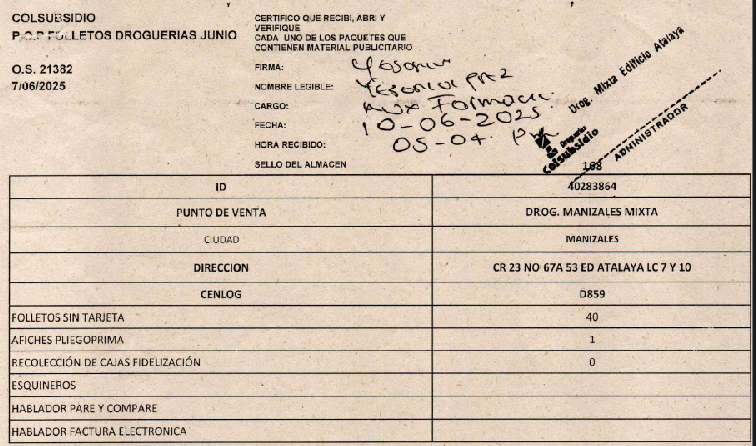 COLSUBSIDIO
P.O.P FOLLETOS DROGUERIAS JUNIO
O.S. 21382
7/06/2025
CERTIFICO QUE RECIBI, ABRI Y
VERIFIQUE
CADA UNO DE LOS PAQUETES QUE
CONTIENEN MATERIAL PUBLICITARIO
FIRMA: Yesenia
NOMBRE LEGIBLE: Yesenia
CARGO: Aux Farmacia
FECHA: 10-06-2025
HORA RECIBIDO: 05-04 Pm
SELLO DEL ALMACEN
Drog. Mixta Edificio Atalaya
Droguerías
colsubsidio
ADMINISTRADOR
168
ID 40283864
PUNTO DE VENTA DROG. MANIZALES MIXTA
CIUDAD MANIZALES
DIRECCION CR 23 NO 67A 53 ED ATALAYA LC 7 Y 10
CENLOG D859
FOLLETOS SIN TARJETA 40
AFICHES PLIEGOPRIMA 1
RECOLECCIÓN DE CAJAS FIDELIZACIÓN 0
ESQUINEROS
HABLADOR PARE Y COMPARE
HABLADOR FACTURA ELECTRONICA